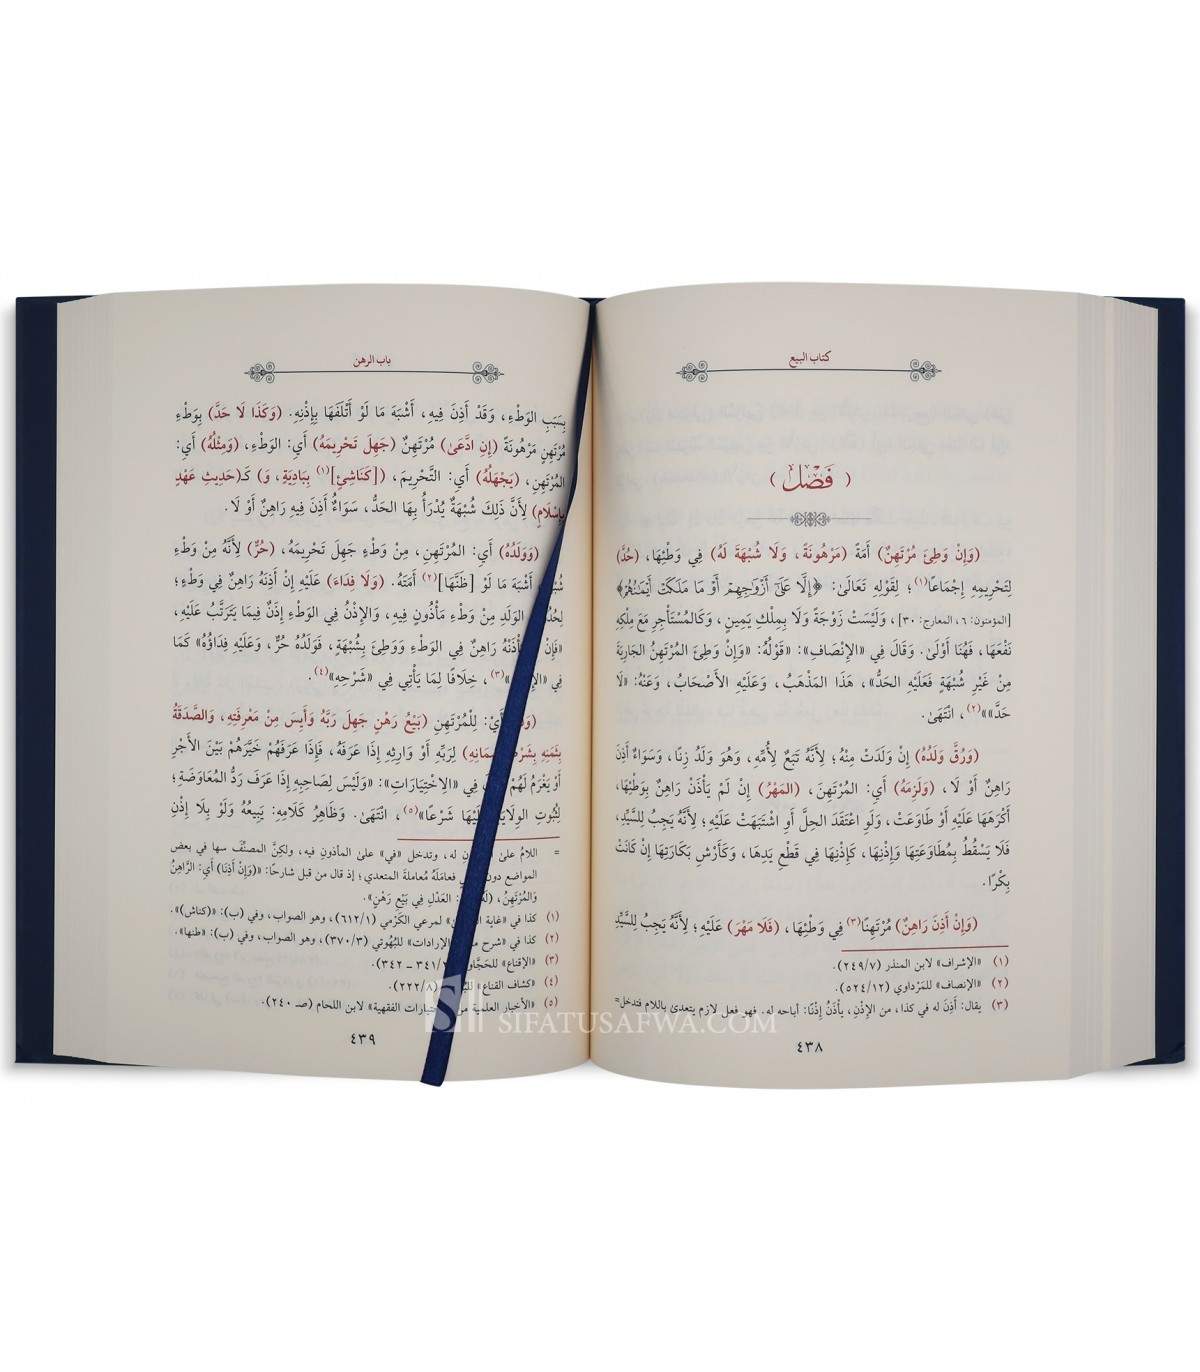 كتاب البيع
(فَصْل)
(وَإِنْ وَطِئَ مُرْتَهِنٌ) أَمَةً (مَرْهُونَةً، وَلَا شُبْهَةَ لَهُ) فِي وَطْئِهَا، (حُدَّ)
لِتَحْرِيمِهِ إِجْمَاعًا(١)؛ لِقَوْلِهِ تَعَالَىٰ: ﴿إِلَّا عَلَىٰٓ أَزْوَٰجِهِمْ أَوْ مَا مَلَكَتْ أَيْمَٰنُهُمْ﴾
[المؤمنون: ٦، المعارج: ٣٠]، وَلَيْسَتْ زَوْجَةً وَلَا بِمِلْكِ يَمِينٍ، وَكَالمُسْتَأْجِرِ مَعَ مِلْكِهِ
نَفْعَهَا، فَهُنَا أَوْلَىٰ. وَقَالَ فِي «الإِنْصَافِ»: «قَوْلُهُ: «وَإِنْ وَطِئَ المُرْتَهِنُ الجَارِيَةَ
مِنْ غَيْرِ شُبْهَةٍ فَعَلَيْهِ الحَدُّ»، هَذَا المَذْهَبُ، وَعَلَيْهِ الأَصْحَابُ، وَعَنْهُ: «لَا
حَدَّ»»(٢)، انْتَهَىٰ.
(وَرُقَّ وَلَدُهُ) إِنْ وَلَدَتْ مِنْهُ؛ لِأَنَّهُ تَبَعٌ لِأُمِّهِ، وَهُوَ وَلَدُ زِنًا، وَسَوَاءٌ أَذِنَ
رَاهِنٌ أَوْ لَا، (وَلَزِمَهُ) أَيِ: المُرْتَهِنَ، (المَهْرُ) إِنْ لَمْ يَأْذَنْ رَاهِنٌ بِوَطْئِهَا،
أَكْرَهَهَا عَلَيْهِ أَوْ طَاوَعَتْ، وَلَوِ اعْتَقَدَ الحِلَّ أَوِ اشْتَبَهَتْ عَلَيْهِ؛ لِأَنَّهُ يَجِبُ لِلسَّيِّدِ،
فَلَا يَسْقُطُ بِمُطَاوَعَتِهَا وَإِذْنِهَا، كَإِذْنِهَا فِي قَطْعِ يَدِهَا، وَكَأَرْشِ بَكَارَتِهَا إِنْ كَانَتْ
بِكْرًا.
(وَإِنْ أَذِنَ رَاهِنٌ) مُرْتَهِنًا(٣) فِي وَطْئِهَا، (فَلَا مَهْرَ) عَلَيْهِ؛ لِأَنَّهُ يَجِبُ لِلسَّيِّدِ
(١) «الإشراف» لابن المنذر (٢٤٩/٧).
(٢) «الإنصاف» للمَرْداوي (٥٢٤/١٢).
(٣) يقال: أَذِنَ له في كذا، من الإِذْنِ، يأذَنُ إِذْنًا: أباحه له. فهو فعل لازم يتعدى باللام فتدخل=
٤٣٨
باب الرهن
بِسَبَبِ الوَطْءِ، وَقَدْ أَذِنَ فِيهِ، أَشْبَهَ مَا لَوْ أَتْلَفَهَا بِإِذْنِهِ. (وَكَذَا لَا حَدَّ) بِوَطْءِ
مُرْتَهِنٍ مَرْهُونَةً (إِنِ ادَّعَىٰ) مُرْتَهِنٌ (جَهِلَ تَحْرِيمَهُ) أَيِ: الوَطْءِ، (وَمِثْلُهُ) أَيِ:
المُرْتَهِنِ، (يَجْهَلُهُ) أَيِ: التَّحْرِيمَ، ([كَنَاشِئٍ](١) بِبَادِيَةٍ، وَ) كَـ(حَدِيثِ عَهْدٍ
بِإِسْلَامٍ) لِأَنَّ ذَلِكَ شُبْهَةٌ يُدْرَأُ بِهَا الحَدُّ، سَوَاءٌ أَذِنَ فِيهِ رَاهِنٌ أَوْ لَا.
(وَوَلَدُهُ) أَيِ: المُرْتَهِنِ، مِنْ وَطْءٍ جَهِلَ تَحْرِيمَهُ، (حُرٌّ) لِأَنَّهُ مِنْ وَطْءِ
أَشْبَهَ مَا لَوْ [ظَنَّهَا](٢) أَمَتَهُ. (وَلَا فِدَاءَ) عَلَيْهِ إِنْ أَذِنَهُ رَاهِنٌ فِي وَطْءٍ؛
الوَلَدِ مِنْ وَطْءٍ مَأْذُونٍ فِيهِ، وَالإِذْنُ فِي الوَطْءِ إِذْنٌ فِيمَا يَتَرَتَّبُ عَلَيْهِ،
«فَإِنْ رَاهِنٌ فِي الوَطْءِ وَوَطِئَ بِشُبْهَةٍ، فَوَلَدُهُ حُرٌّ، وَعَلَيْهِ فِدَاؤُهُ» كَمَا
فِي (٣)، خِلَافًا لِمَا يَأْتِي فِي «شَرْحِهِ»(٤).
أَيْ: لِلْمُرْتَهِنِ (بَيْعُ رَهْنٍ جَهِلَ رَبَّهُ وَأَيِسَ مِنْ مَعْرِفَتِهِ، وَالصَّدَقَةُ
بِثَمَنِهِ بِشَرْطِ ضَمَانِهِ) لِرَبِّهِ أَوْ وَارِثِهِ إِذَا عَرَفَهُ، فَإِذَا عَرَفَهُمْ خَيَّرَهُمْ بَيْنَ الأَجْرِ
أَوْ يَغْرَمُ لَهُمْ فِي «الِاخْتِيَارَاتِ»: «وَلَيْسَ لِصَاحِبِهِ إِذَا عَرَفَ رَدُّ المُعَاوَضَةِ؛
لِثُبُوتِ الوِلَايَةِ عَلَيْهَا شَرْعًا»(٥)، انْتَهَىٰ. وَظَاهِرُ كَلَامِهِ: يَبِيعُهُ وَلَوْ بِلَا إِذْنِ
= اللامُ علىٰ له، وتدخل «في» علىٰ المأذونِ فيه، ولكنَّ المصنِّفَ سها في بعض
المواضع دون فعامَلَهُ مُعاملةَ المتعدي؛ إذ قال من قبل شارحًا: «(وَإِنْ أَذِنَا) أَيِ: الرَّاهِنُ
وَالمُرْتَهِنُ، العَدْلِ فِي بَيْعِ رَهْنٍ».
(١) كذا في «غاية لمرعي الكَرْمي (٦١٢/١)، وهو الصواب، وفي (ب): «(كناش)».
(٢) كذا في «شرح الإرادات» للبُهُوتي (٣٧٠/٣)، وهو الصواب، وفي (ب): «طنها».
(٣) «الإقناع» للحَجَّاوي ٣٤١ – ٣٤٢).
(٤) «كشاف القناع» (٢٢٢/٨).
(٥) «الأخبار العلمية الفقهية» لابن اللحام (صـ ٢٤٠).
٤٣٩
SIFATUSAFWA.COM